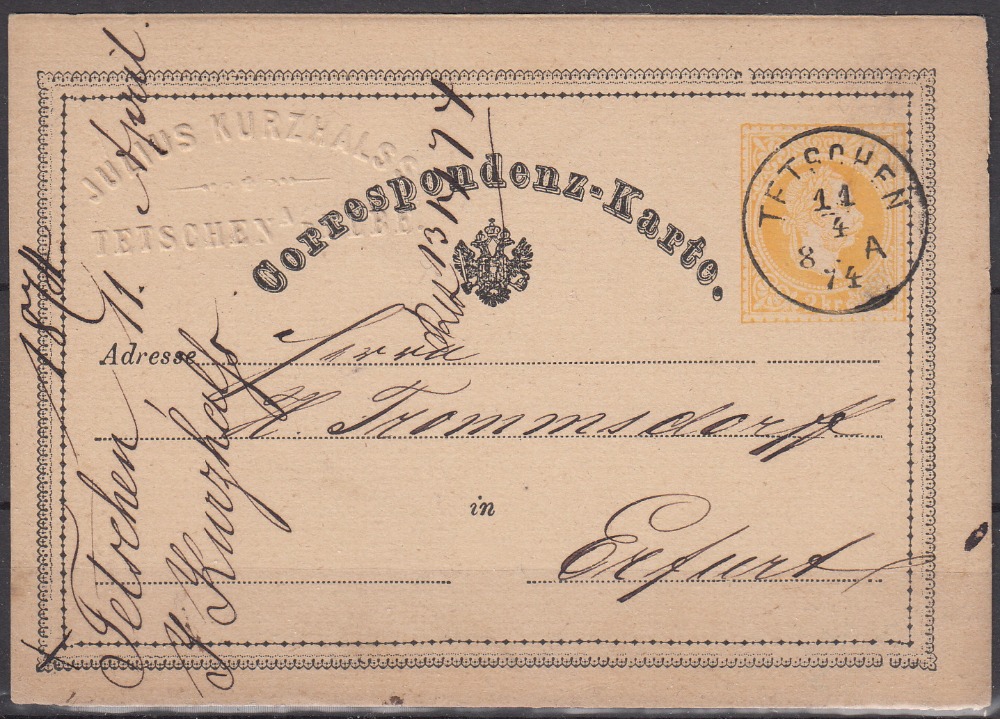 JULIUS KURZHALSS
TETSCHEN
Correspondenz-Karte.
TETSCHEN
11
4
8 A
74
2 kr.
Adresse Herrn
H. Trommsdorff
in
Erfurt
Tetschen 11. April 1874
J Kurzhalss
13 14 74